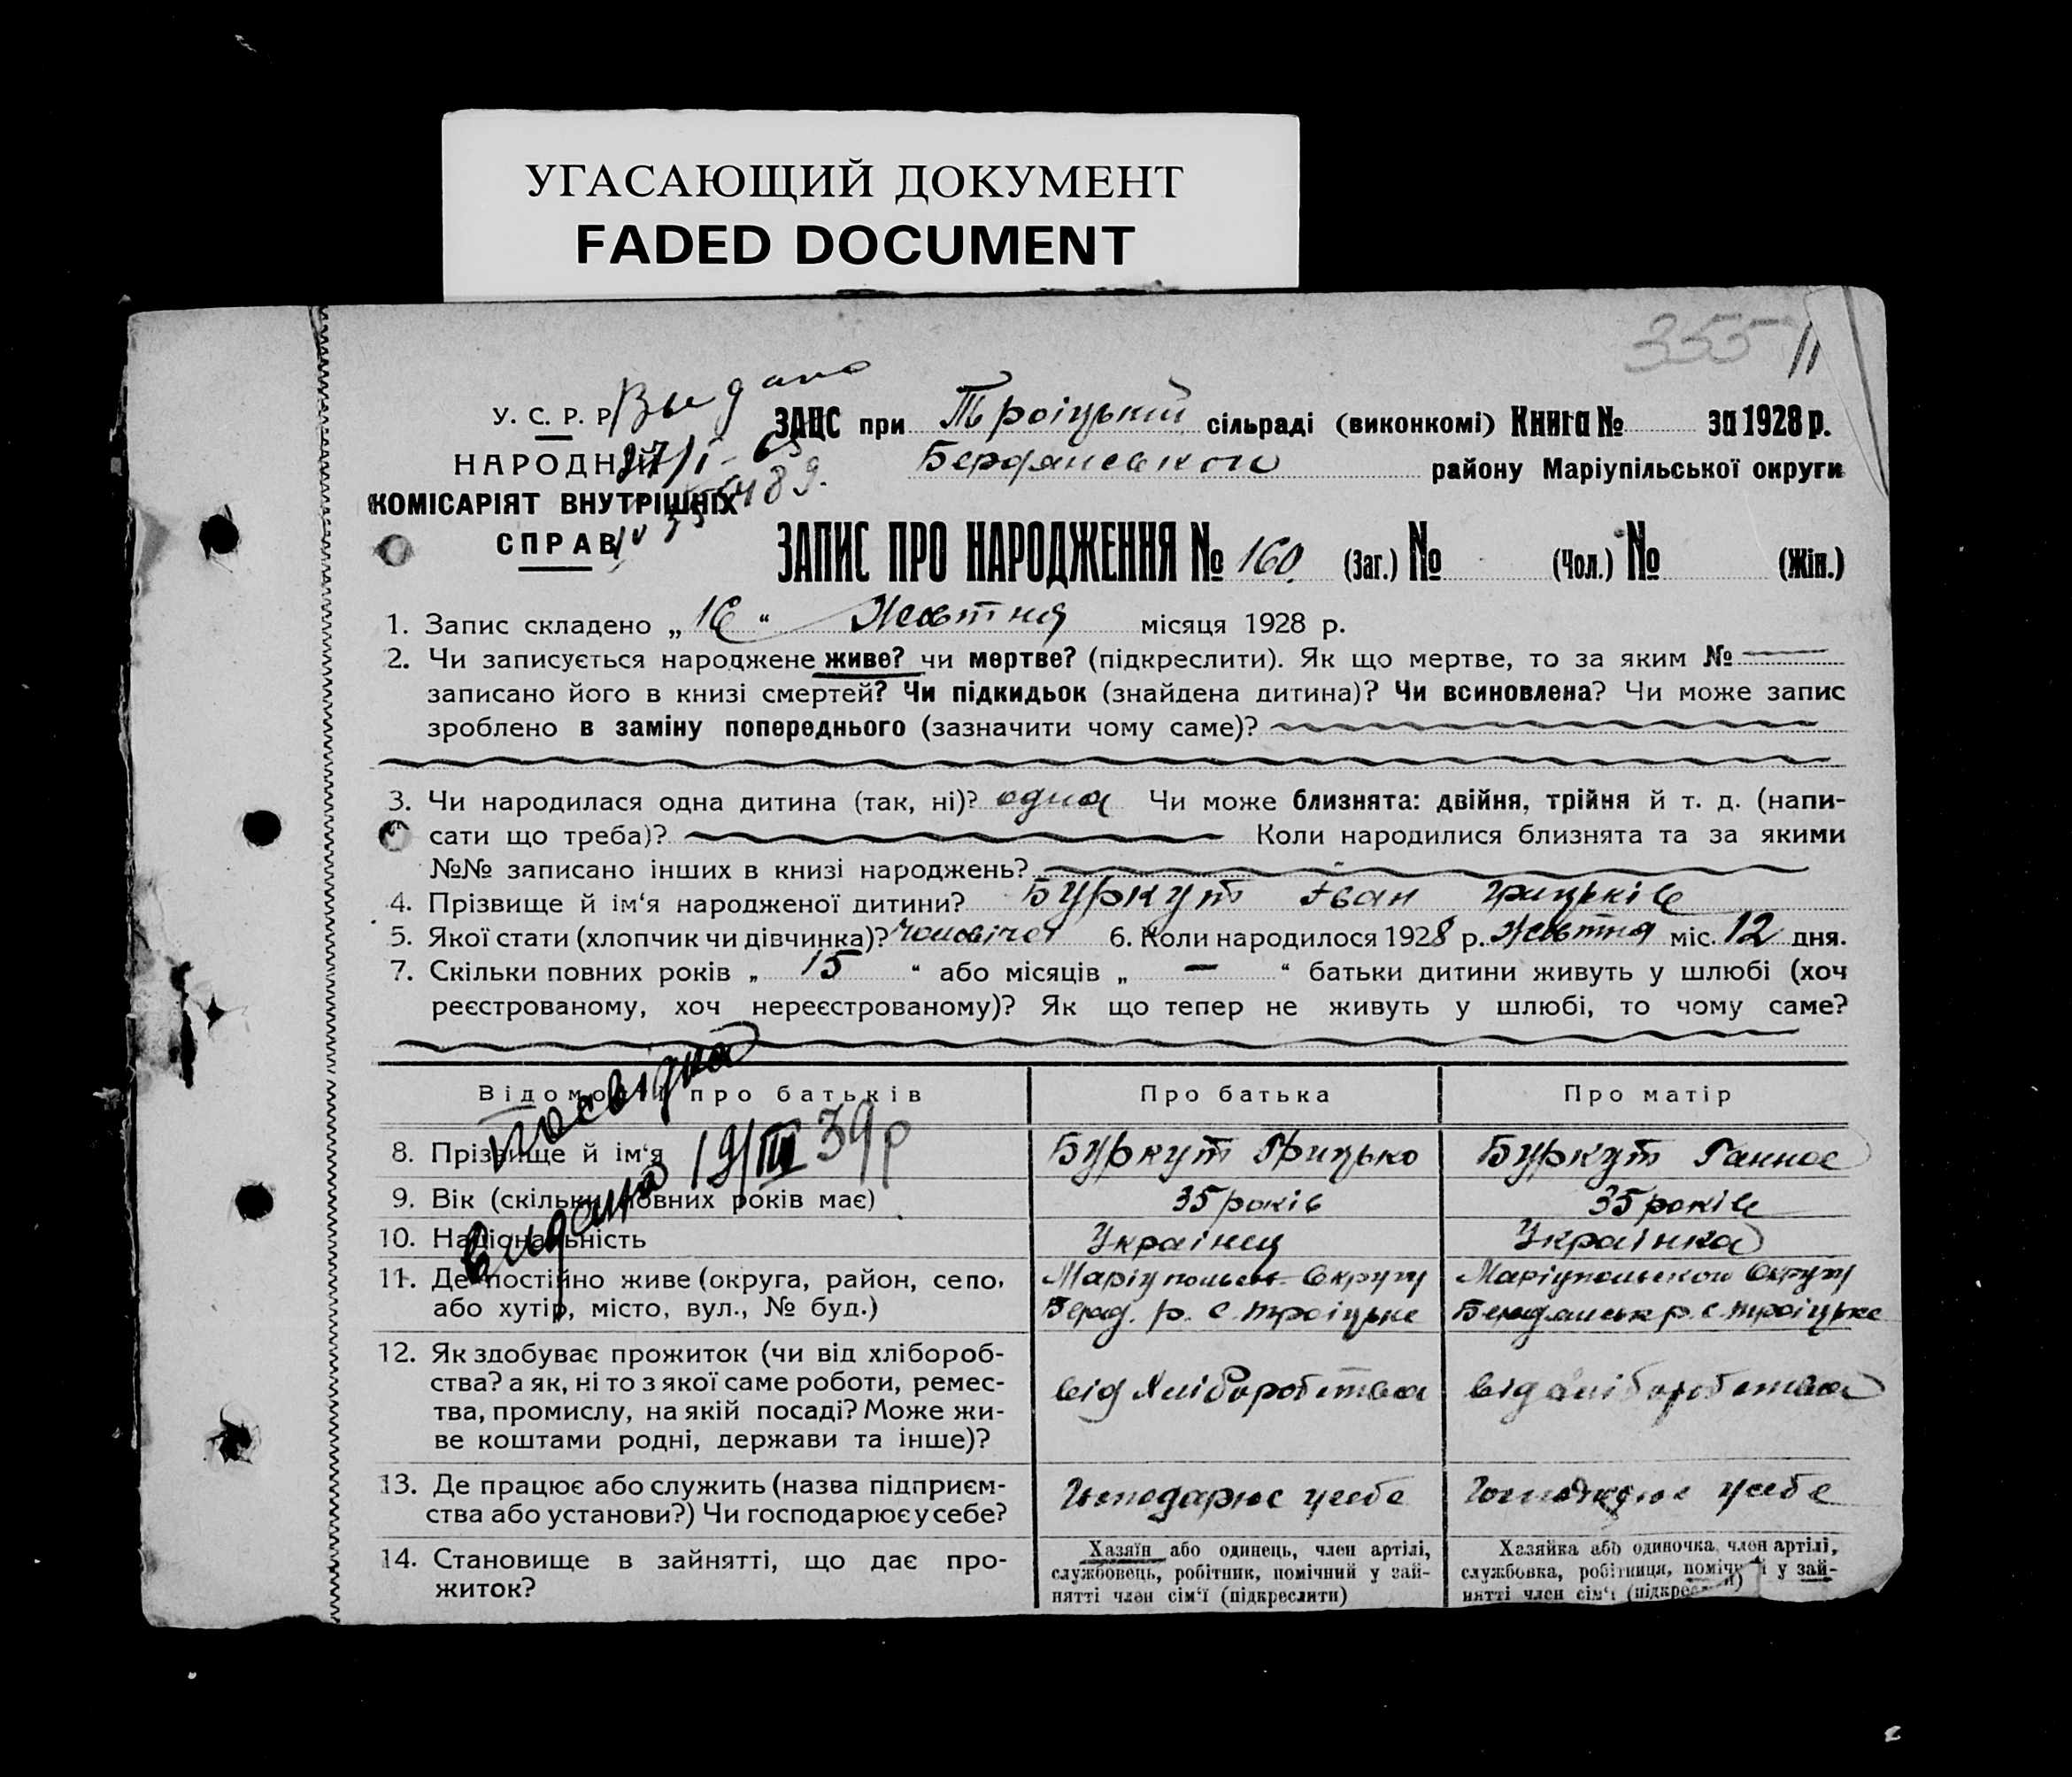 УГАСАЮЩИЙ ДОКУМЕНТ
FADED DOCUMENT
355
11
У. С. Р. Р.
Видано
НАРОДНИЙ
КОМІСАРІЯТ ВНУТРІШНІХ
СПРАВ
ЗАЦС при Троіцькій сільраді (виконкомі) Книга № за 1928 р.
Бердянського району Маріупільської округи
ЗАПИС ПРО НАРОДЖЕННЯ № 160. (Заг.) № (Чол.) № (Жін.)
1. Запис складено „ 16 “ Жовтня місяця 1928 р.
2. Чи записується народжене живе? чи мертве? (підкреслити). Як що мертве, то за яким №
записано його в книзі смертей? Чи підкидьок (знайдена дитина)? Чи всиновлена? Чи може запис
зроблено в заміну попереднього (зазначити чому саме)?
3. Чи народилася одна дитина (так, ні)? одна Чи може близнята: двійня, трійня й т. д. (напи-
сати що треба)? Коли народилися близнята та за якими
№№ записано інших в книзі народжень?
4. Прізвище й ім‘я народженої дитини? Буркут Іван Грицьків
5. Якої стати (хлопчик чи дівчинка)? Чоловічої 6. Коли народилося 1928 р. Жовтня міс. 12 дня.
7. Скільки повних років „ 15 “ або місяців „ — “ батьки дитини живуть у шлюбі (хоч
реєстрованому, хоч нереєстрованому)? Як що тепер не живуть у шлюбі, то чому саме?
Відомості про батьків Про батька Про матір
посвідка
видана 19/III 39р
8. Прізвище й ім‘я Буркут Грицько Буркут Ганна
9. Вік (скільки повних років має) 35 років 35 років
10. Національність Украінец Украінка
11. Де постійно живе (округа, район, село, Маріупольськ Округу Маріупольскои Округу
або хутір, місто, вул., № буд.) Берд. р. с. Троіцьке Бердянськ р. с. Троіцьке
12. Як здобуває прожиток (чи від хлібороб-
ства? а як, ні то з якої саме роботи, ремес- від Хліборобства від хліборобства
тва, промислу, на якій посаді? Може жи-
ве коштами родні, держави та інше)?
13. Де працює або служить (назва підприєм- Господарює у себе Господарює у себе
ства або установи?) Чи господарює у себе?
14. Становище в зайнятті, що дає про-
житок?
Хазяїн або одинець, член артілі,
службовець, робітник, помічний у зай-
нятті член сім‘ї (підкреслити)
Хазяйка або одиночка, член артілі,
службовка, робітниця, у зай-
нятті член сім‘ї